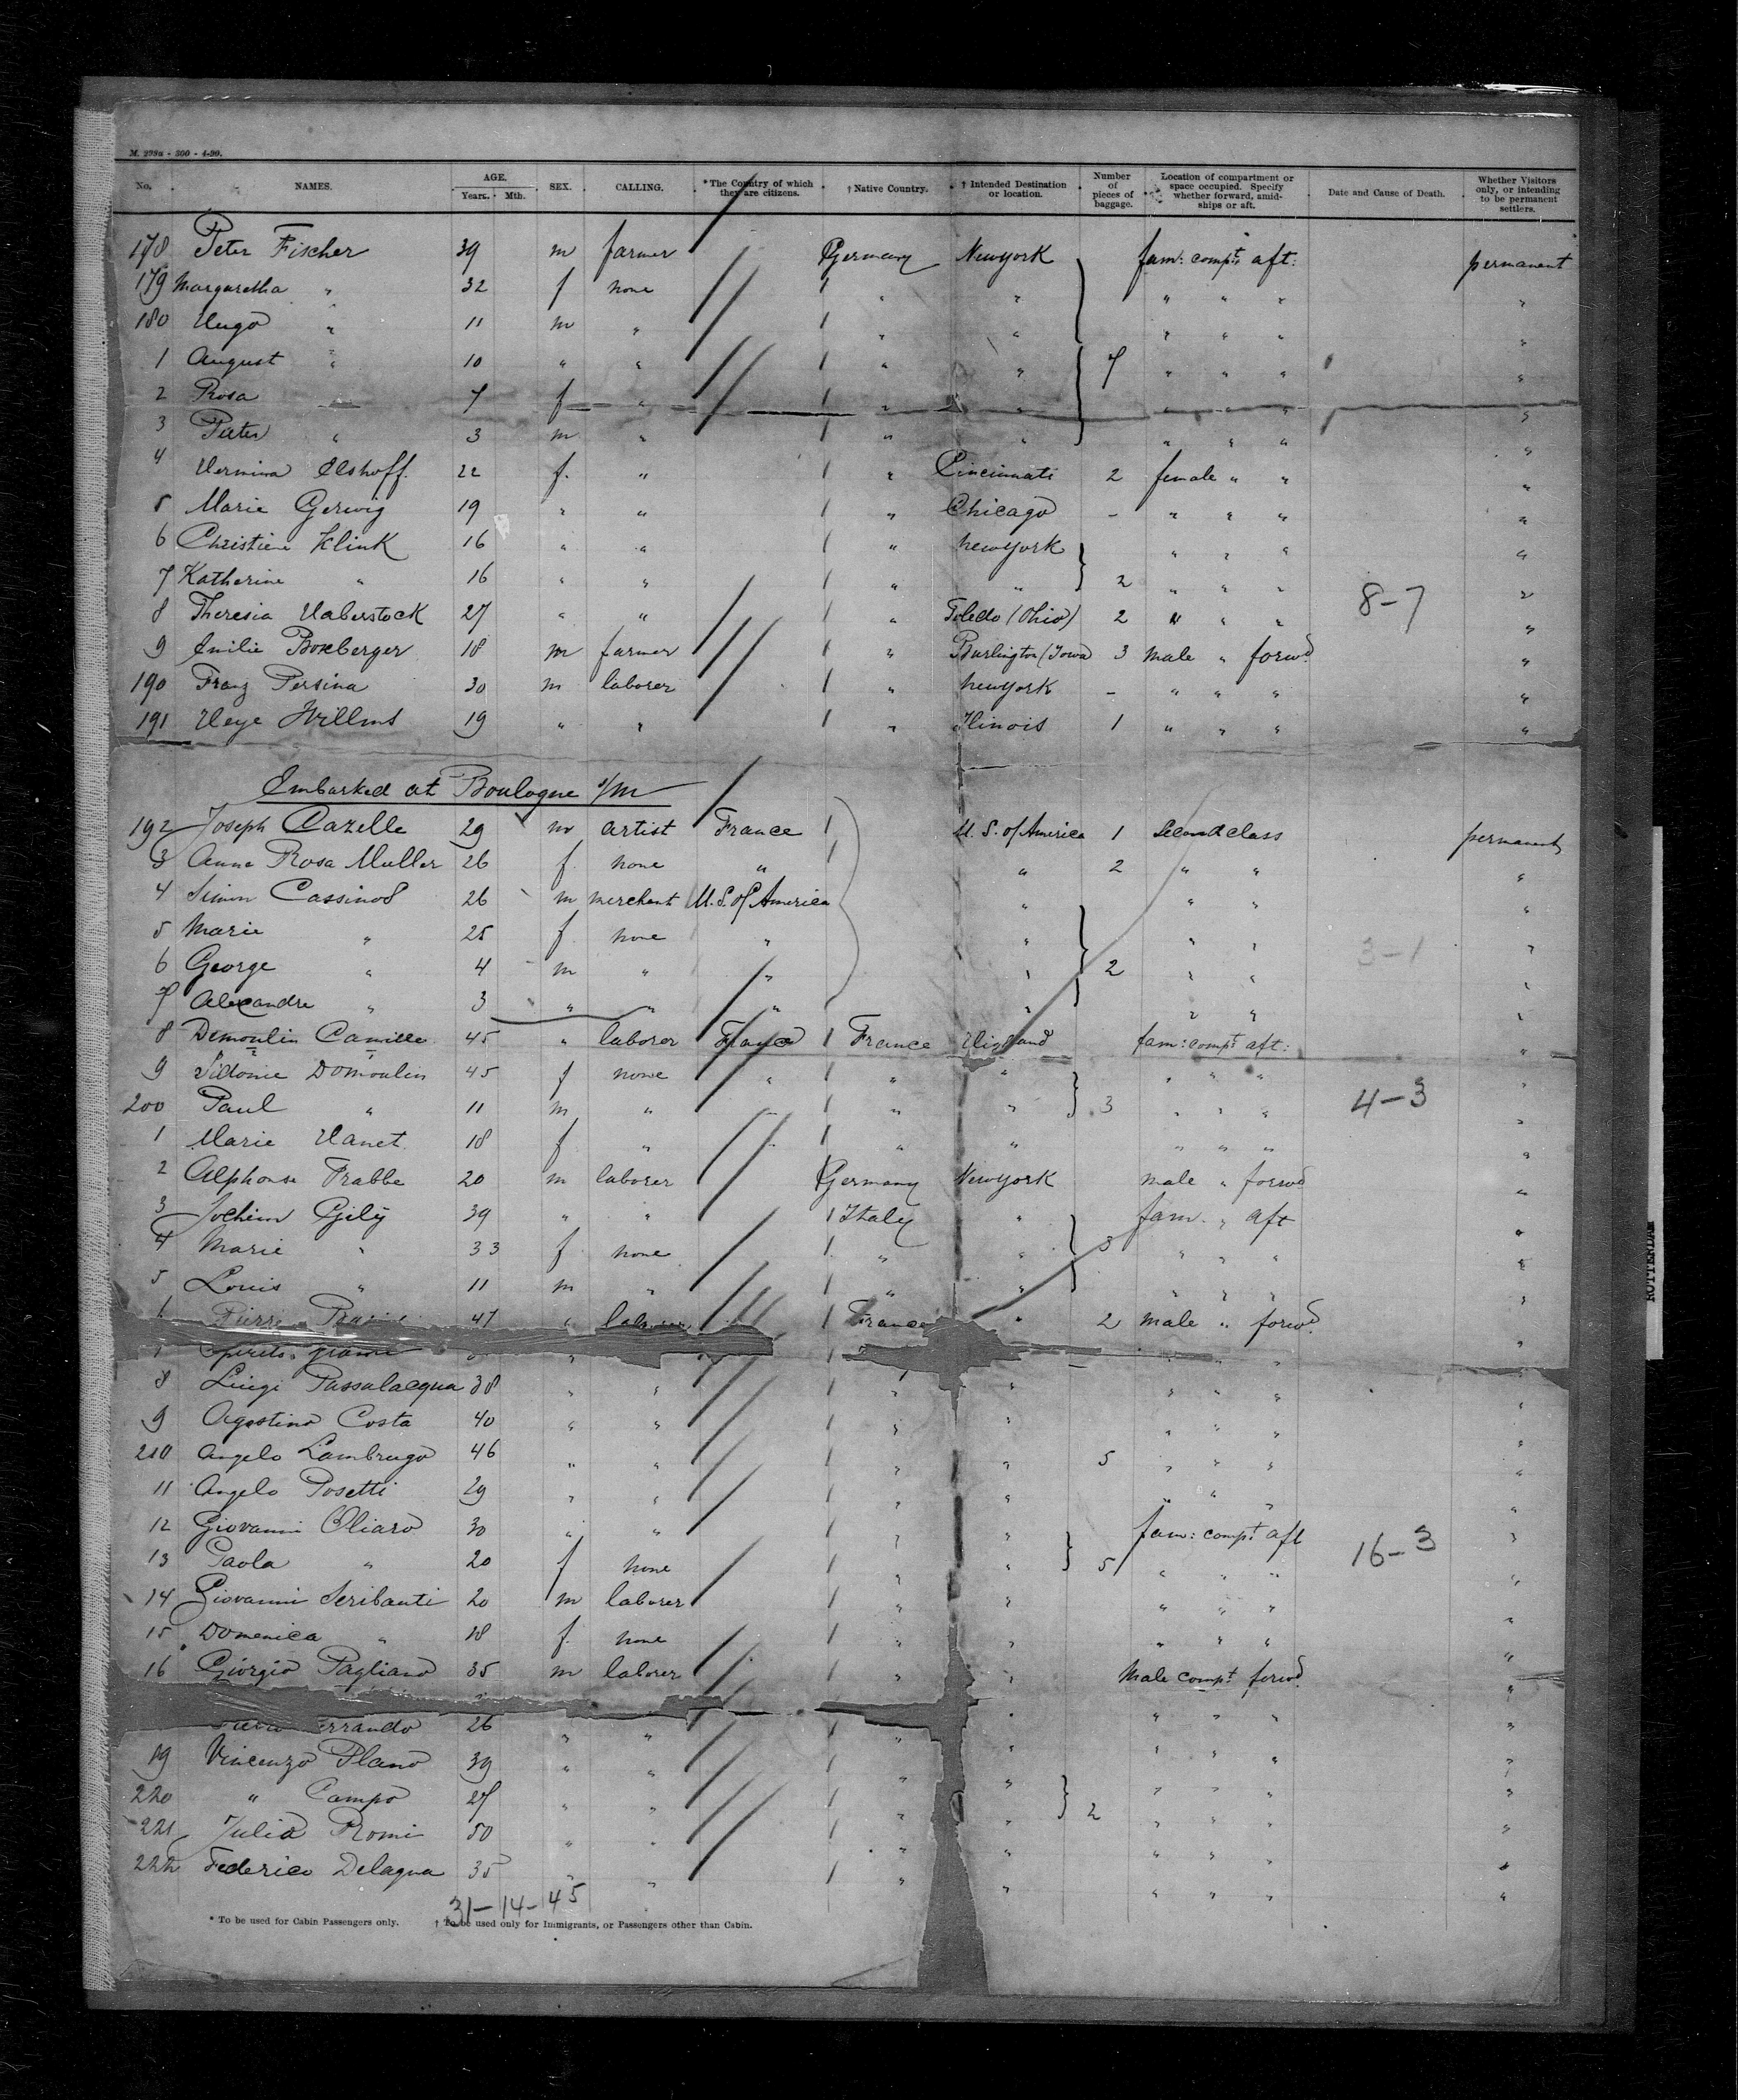 M. 299a - 500 - 4-90.
No. NAMES. AGE. Years. Mth. SEX. CALLING. *The Country of which they are citizens. † Native Country. † Intended Destination or location. Number of pieces of baggage. Location of compartment or space occupied. Specify whether forward, amidships or aft. Date and Cause of Death. Whether Visitors only, or intending to be permanent settlers.
178 Peter Fischer 39 m farmer Germany Newyork fam: compt: aft: permanent
179 Margaretha " 32 f none " " " " " "
180 Hugo " 11 m " " " " " " "
1 August " 10 " " " " 7 " " " "
2 Rosa 7 f " " " " " " "
3 Peter " 3 m " " " " " " "
4 Hermina Elshoff 22 f. " " Cincinnati 2 female " " "
5 Marie Gerwig 19 " " " Chicago - " " " "
6 Christiene Klink 16 " " " Newyork " " " "
7 Katherine " 16 " " " " 2 " " " "
8 Theresia Haberstock 27 " " " Toledo (Ohio) 2 " " " 8-7 "
9 Emilie Boxberger 18 m farmer " Burlington (Iowa) 3 male " forwd. "
190 Franz Persina 30 m laborer " Newyork - " " " "
191 Heye Willms 19 " " " Ilinois 1 " " " "
Embarked at Boulogne s/m
192 Joseph Cazelle 29 m artist France U. S. of America 1 Second class permanent
3 Anna Rosa Muller 26 f. none " " 2 " " "
4 Simon Cassinos 26 m merchant U. S. of America " " " "
5 Marie " 25 f. none " " " " "
6 George " 4 m " " " 2 " " 3-1 "
7 Alexandre " 3 " " " " " " "
8 Demoulin Camille 45 " laborer France France fam: compt aft: "
9 Sidonie Domoulin 45 f none " " " " " " "
200 Paul " 11 m " " " 3 " " " 4-3 "
1 Marie Hanet 18 f " " " " " " "
2 Alphonse Frabbe 20 m laborer Germany Newyork male " forwd "
3 Jochim Gily 39 " " Italy " fam. " aft "
4 Marie " 33 f. none " " 3 " " " "
5 Louis " 11 m " " " " " " "
6 Pierre 47 " laborer France " 2 male " forwd. "
8 Luigi Passalacqua 38 " " " " " " " "
9 Agostino Costa 40 " " " " " " " "
210 Angelo Lambrugo 46 " " " " 5 " " " "
11 Angelo Posetti 29 " " " " " " " "
12 Giovanni Oliaro 30 " " " " fam: compt aft "
13 Paola " 20 f none " " 5 " " " 16-3 "
14 Giovanni Scribanti 20 m laborer " " " " " "
15 Domenica " 18 f. none " " " " " "
16 Giorgio Pagliano 35 m laborer " " Male compt forwd. "
26 " " " " " " " "
19 Vincenzo Plano 39 " " " " " " " "
220 " Campo 27 " " " " 2 " " " "
221 Julia Romi 50 " " " " " " " "
222 Federico Delaqua 35 " " " " " " " "
31-14-45
* To be used for Cabin Passengers only. † To be used only for Immigrants, or Passengers other than Cabin.
ROTTERDAM